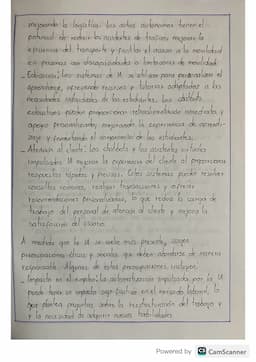 mejorando la logística. Los autos autónomos tienen el
potencial de reducir los accidentes de tráfico, mejorar la
eficiencia del transporte y facilitar el acceso a la movilidad
en personas con discapacidades o limitaciones de movilidad.
- Educación: Los sistemas de IA se utilizan para personalizar el
aprendizaje, ofreciendo recursos y tutorías adaptados a las
necesidades individuales de los estudiantes. Los chatbots
educativos pueden proporcionar retroalimentación inmediata y
apoyo personalizado, mejorando la experiencia de aprendi-
zaje y fomentando el compromiso de los estudiantes.
- Atención al cliente: Los chatbots y los asistentes virtuales
impulsados IA mejoran la experiencia del cliente al proporcionar
respuestas rápidas y precisas. Estos sistemas pueden resolver
consultas comunes, realizar transacciones y ofrecer
recomendaciones personalizadas, lo que reduce la carga de
trabajo del personal de atención al cliente y mejora la
satisfacción del usuario.
A medida que la IA se vuelve más presente, surgen
preocupaciones éticas y sociales que deben abordarse de manera
responsable. Algunas de estas preocupaciones incluyen:
- Impacto en el empleo: La automatización impulsada por la IA
puede tener un impacto significativo en el mercado laboral, lo
que plantea preguntas sobre la reestructuración del trabajo y
y la necesidad de adquirir nuevas habilidades.
Powered by CS CamScanner